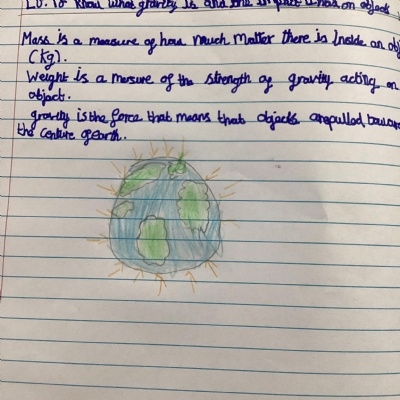 L.O. To know what gravity is and the impact it has on object
Mass is a measure of how much matter there is inside an obj
(kg).
Weight is a mersure of the strength of gravity acting on
object.
gravity is the force that means that objects are pulled towar
the centure of earth.